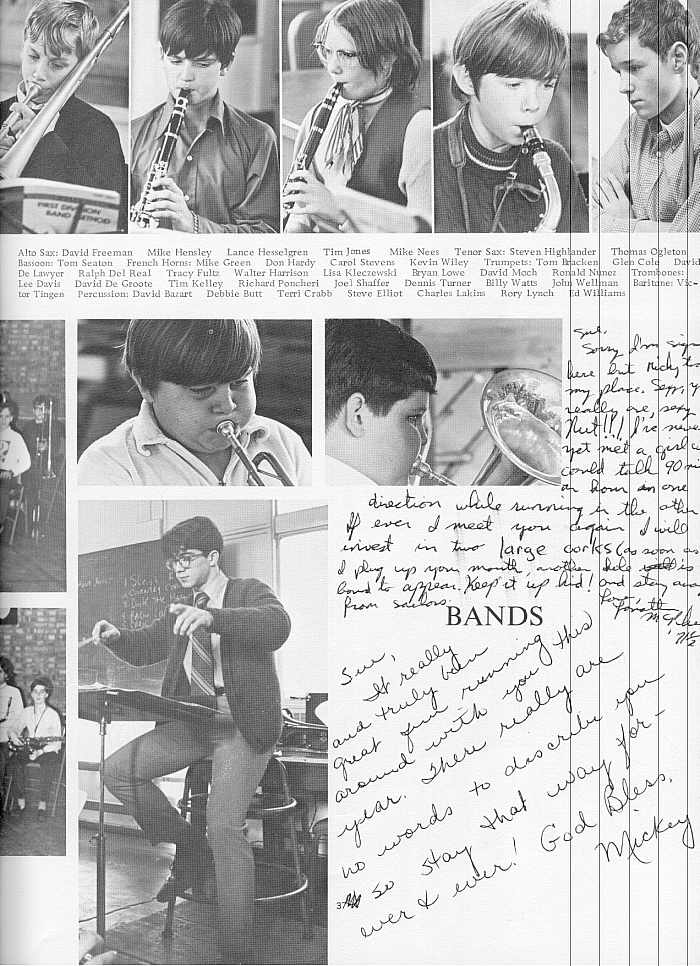 FIRST DIVISION
BAND METHOD
Alto Sax: David Freeman Mike Hensley Lance Hesselgren Tim Jones Mike Nees Tenor Sax: Steven Highlander Thomas Ogleton
Bassoon: Tom Seaton French Horns: Mike Green Don Hardy Carol Stevens Kevin Wiley Trumpets: Tom Bracken Glen Cole David
De Lawyer Ralph Del Real Tracy Fultz Walter Harrison Lisa Kleczewski Bryan Lowe David Moch Ronald Nunez Trombones:
Lee Davis David De Groote Tim Kelley Richard Poncheri Joel Shaffer Dennis Turner Billy Watts John Wellman Baritone: Vic-
tor Tingen Percussion: David Bazart Debbie Butt Terri Crabb Steve Elliot Charles Lakins Rory Lynch Ed Williams
Sue,
Sorry I'm sign
here but Micky
my place.
really are, sexy
Nut!!! I've never
yet met a girl
could talk 90 mi
an hour in one
direction while running in the other
If ever I meet you again I will
invest in two large corks (as soon as
I plug up your mouth, another hole is
bound to appear. Keep it up kid! and stay away
from sailors.
Love,
BANDS
Sue,
It really
and truly been
great fun running
around with you this
year. There really are
no words to describe you
so stay that way for-
ever & ever! God Bless,
Mickey